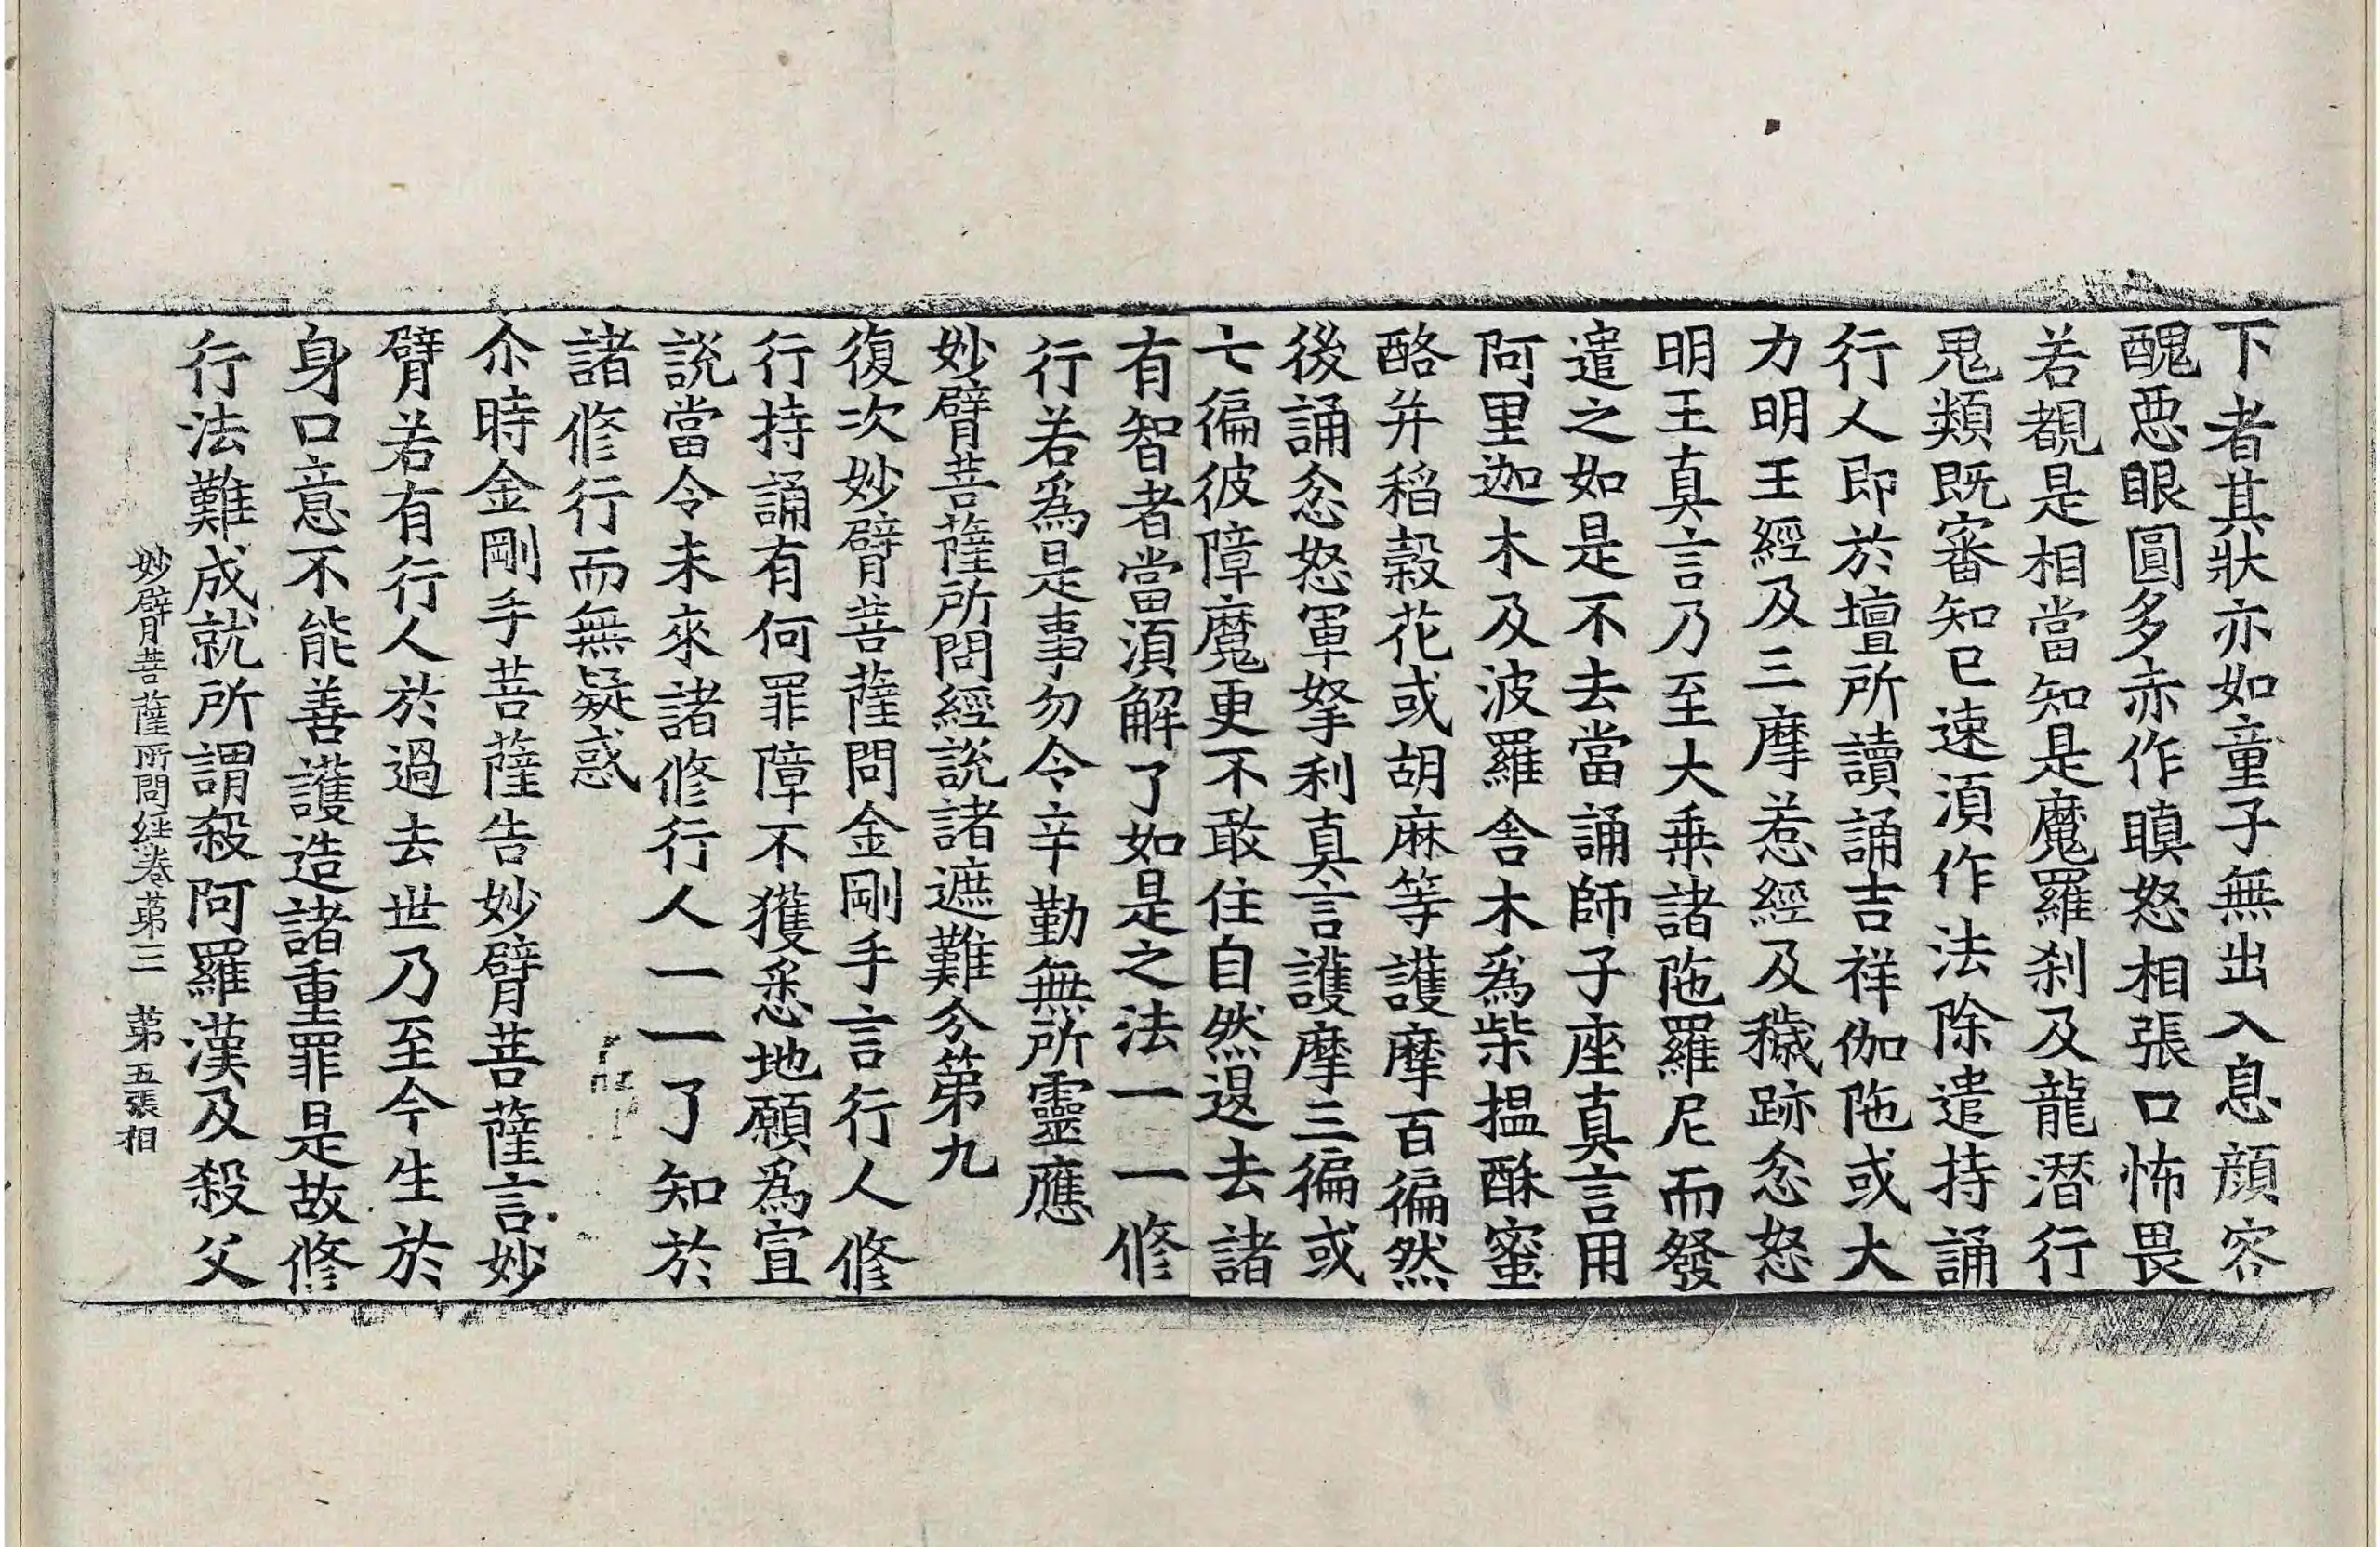 下者其狀亦如童子無出入息顔容
醜悪眼圓多赤作瞋怒相張口怖畏
若覩是相當知是魔羅刹及龍潛行
鬼類既審知已速湏作法除遣持誦
行人即於壇所讀誦吉祥伽陁或大
力明王經及三摩惹經及穢跡忿怒
明王真言乃至大乗諸陁羅尼而發
遣之如是不去當誦師子座真言用
阿里迦木及波羅舎木爲柴搵酥蜜
酪并稻穀花或胡麻等護摩百徧然
後誦忿怒軍拏利真言護摩三徧或
七徧彼障魔更不敢住自然退去諸
有智者當湏解了如是之法一一修
行若爲是事勿令辛勤無所靈應
妙臂菩薩所問經說諸遮難分第九
復次妙臂菩薩問金剛手言行人修
行持誦有何罪障不獲悉地願爲宣
説當令未來諸修行人一一了知於
諸修行而無疑惑
尒時金剛手菩薩告妙臂菩薩言妙
臂若有行人於過去世乃至今生於
身口意不能善護造諸重罪是故修
行法難成就所謂殺阿羅漢及殺父
妙臂菩薩所問経卷苐三 苐五張 相